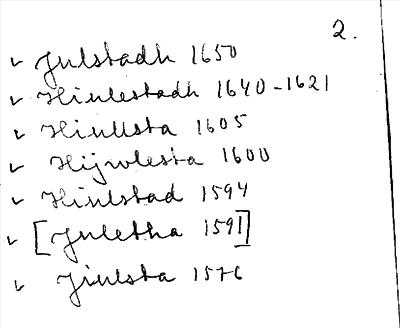 2.
✓ Julstadh 1650
✓ Hiulestadh 1640-1621
✓ Hiullsta 1605
✓ Hijwlesta 1600
✓ Hiulstad 1594
✓ [Juletha 1591]
✓ Jiulsta 1576